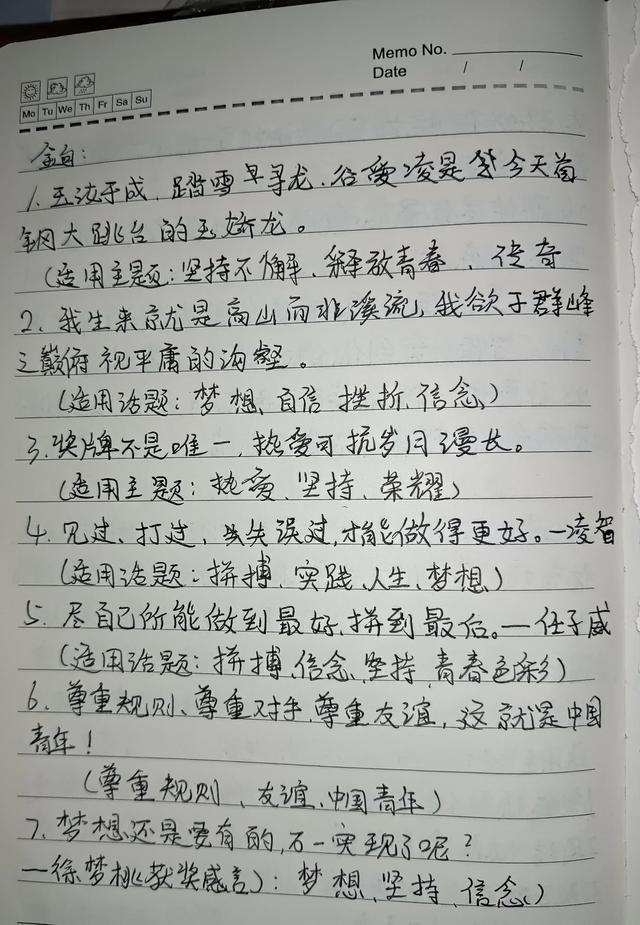 Memo No.
Date / /
Mo Tu We Th Fr Sa Su
金句:
1. 玉汝于成,踏雪早寻龙.谷爱凌是今天首
钢大跳台的玉娇龙。
(适用主题:坚持不懈、释放青春、传奇
2. 我生来就是高山而非溪流,我欲于群峰
之巅俯视平庸的沟壑。
(适用话题:梦想、自信 挫折、信念)
3. 奖牌不是唯一,热爱可抗岁月漫长。
(适用主题:热爱、坚持、荣耀)
4. 见过、打过,失误过,才能做得更好。—凌智
(适用话题:拼搏、实践、人生、梦想)
5. 尽自己所能做到最好,拼到最后。—任子威
(适用话题:拼搏、信念、坚持、青春色彩)
6. 尊重规则、尊重对手、尊重友谊,这就是中国
青年!
(尊重规则、友谊、中国青年)
7. 梦想还是要有的,万一实现了呢?
—徐梦桃(获奖感言):梦想、坚持、信念)